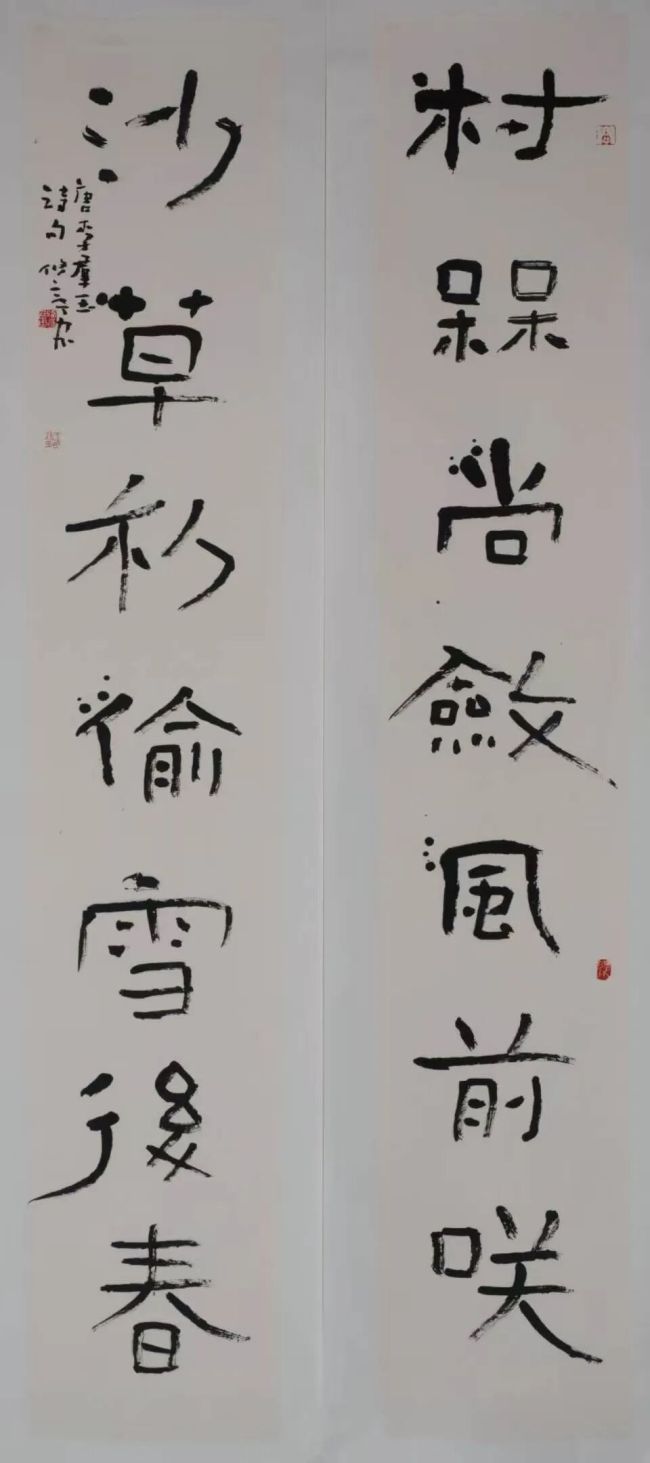 村槑尚斂風前咲
沙草初偷雪後春
唐李羣玉
詩句